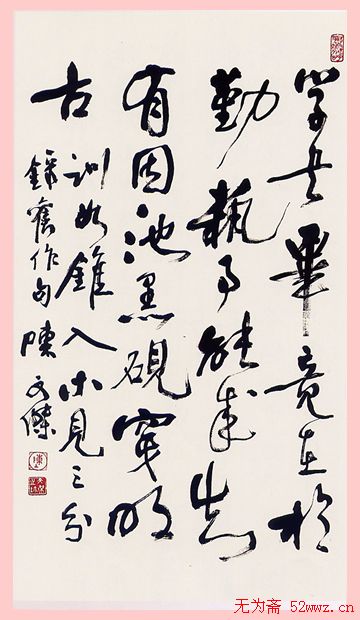 学书畢竟在於
勤藝事能成
有因池黑硯穿明
古訓如錐入木見三分
錄舊作句 陳文傑
无为斋 52wwz.cn